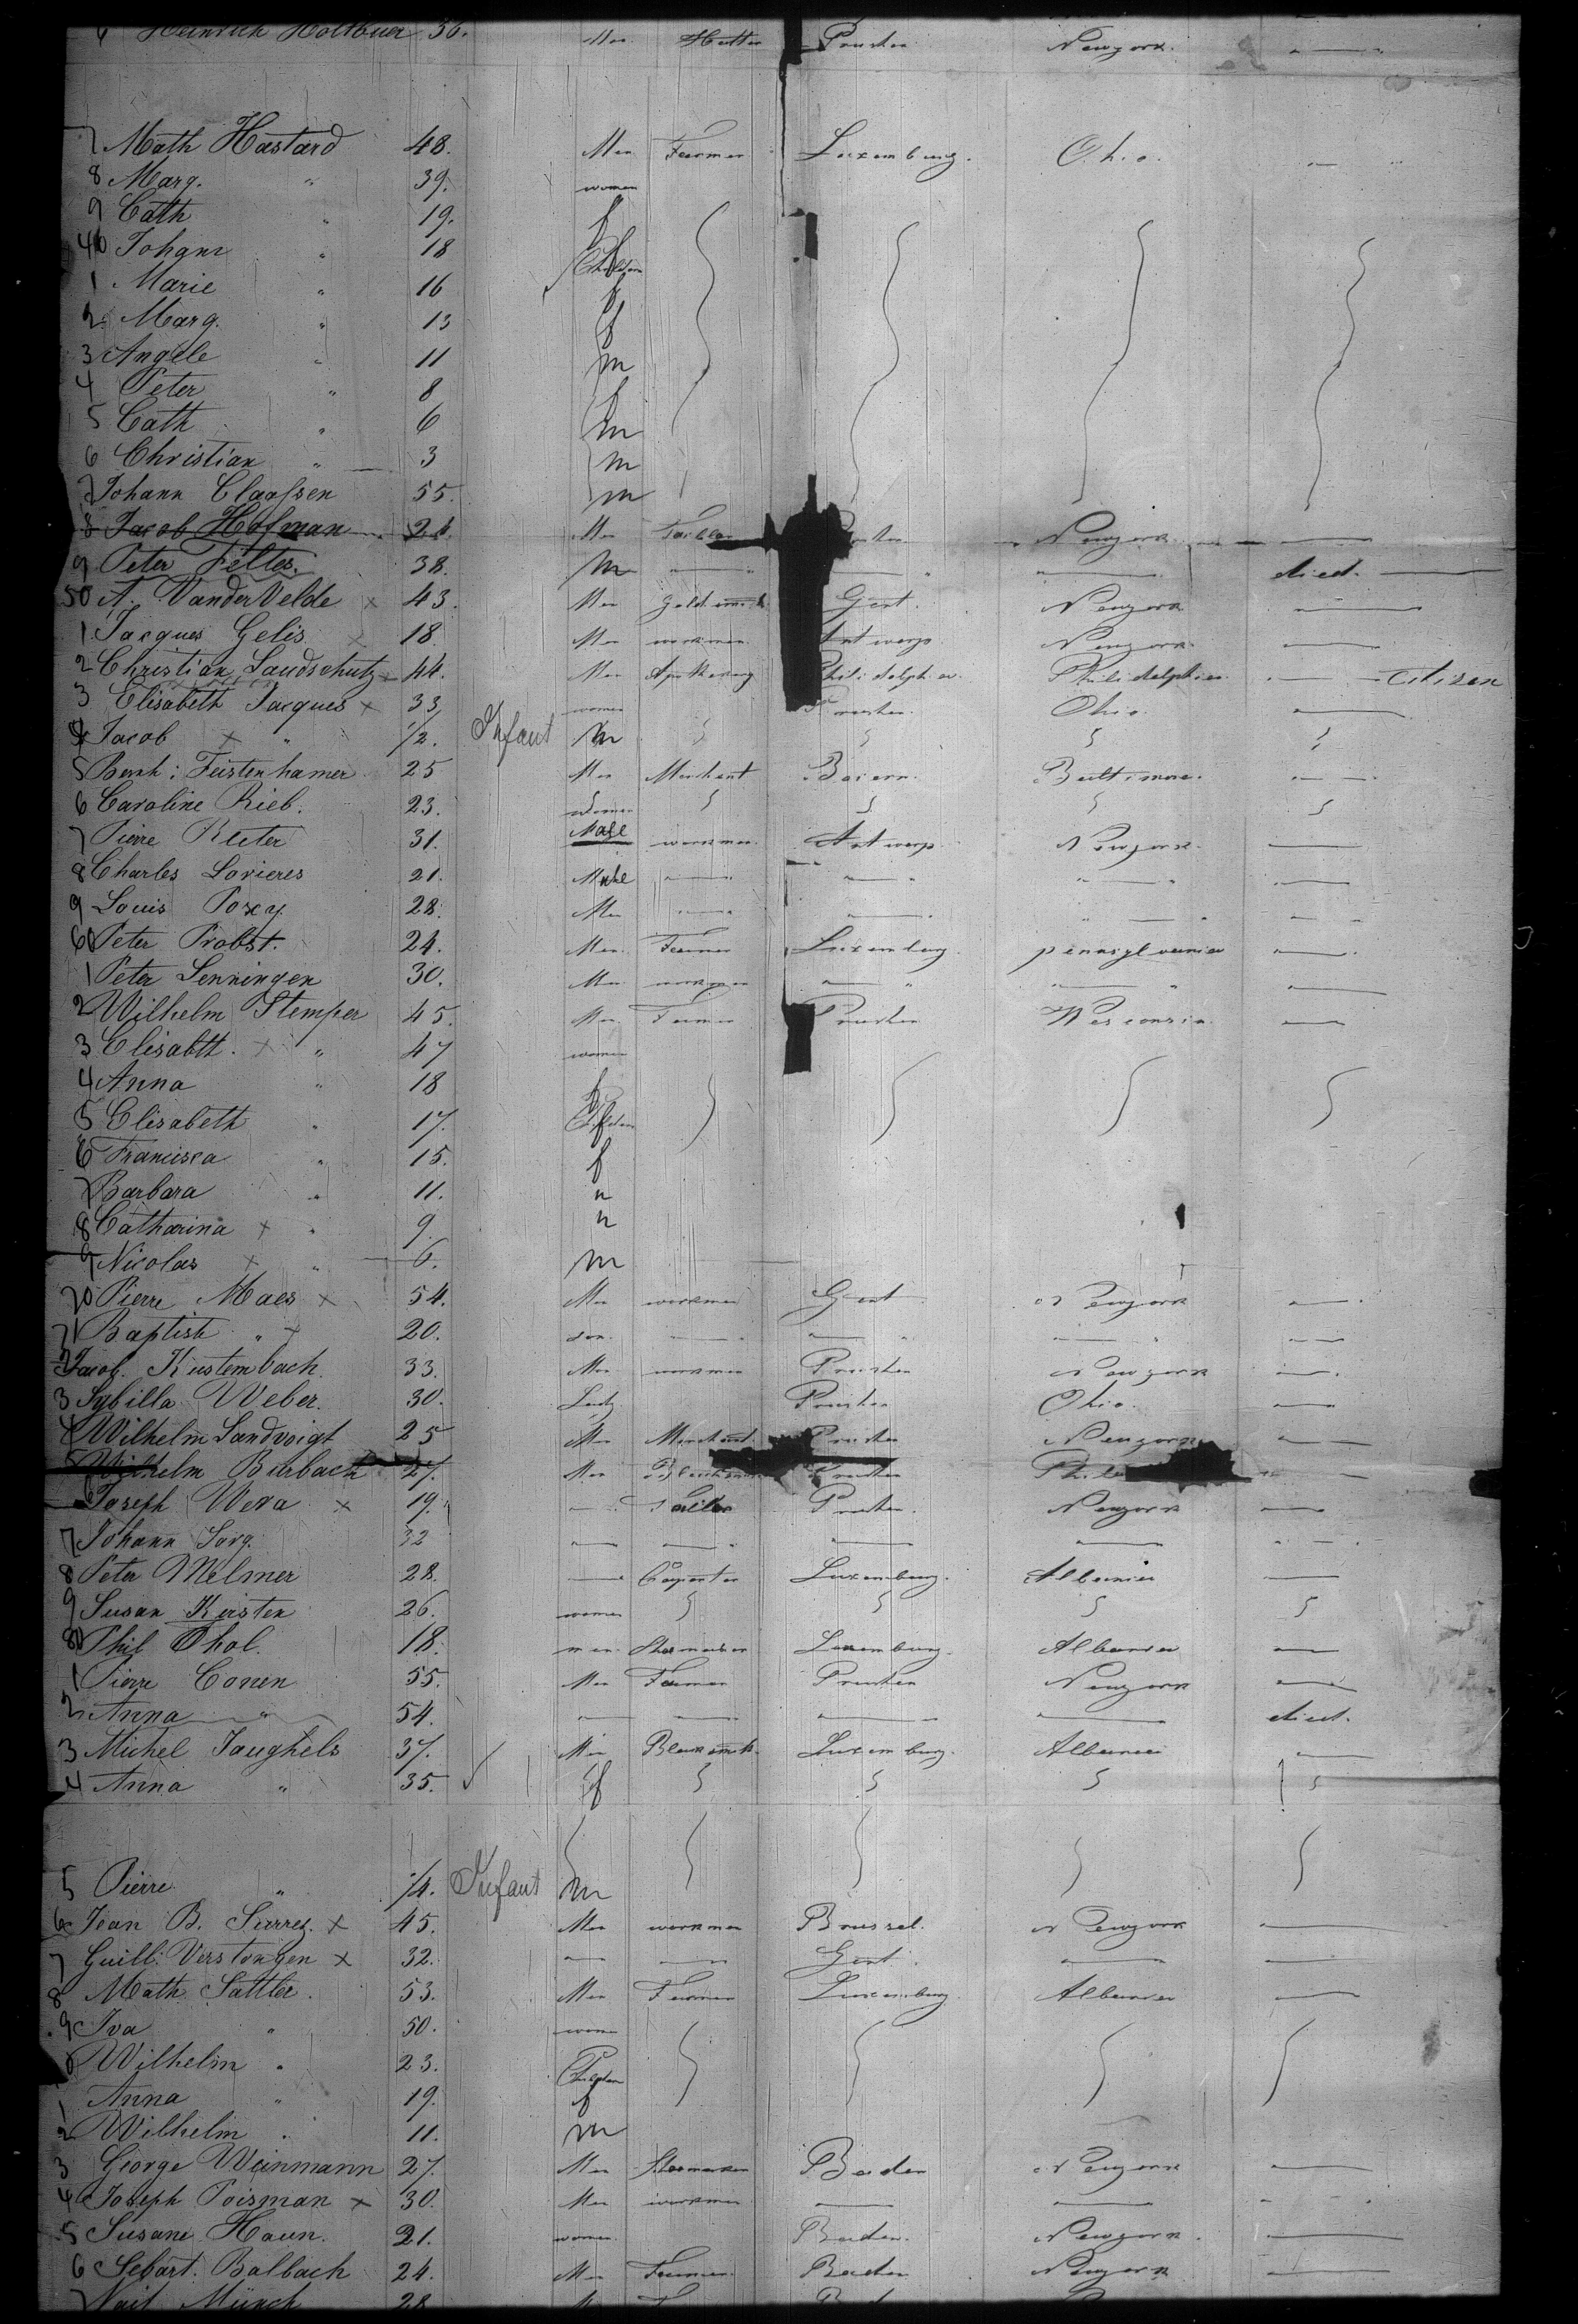 6 Heinrich Holtbuer 36. Men Prusten Newyork
7 Math Hastard 48. Men Farmer Luxemburg. Ohio.
8 Marg. " 39. women
9 Cath " 19. f
40 Johann " 18 Children
1 Marie " 16 f
2 Marg. " 13 f
3 Angele " 11 m
4 Peter " 8 f
5 Cath " 6 m
6 Christian " 3 m
7 Johann Claassen 55. m
8 Jacob Hofman 24. Men Newyork
9 Peter Felter. 38. m died.
50 A. VanderVelde x 43. Men Goldsmith Gent. Newyork
1 Jacques Gelis x 18. Men workmen Antwerp Newyork.
2 Christian Landschutz x 44. Men Apothecary Philidelphia. Philidelphia Citizen
3 Elisabeth Jacques x 33 women Prusten. Ohio.
4 Jacob x " 1/2. Infant m
5 Bernh: Feistenhamer 25 Men Merchant Baiern. Baltimore.
6 Caroline Rieb. 23. women
7 Pierre Reeter 31. Male workmen. Antwerp. Newyork.
8 Charles Lovieres 21. Male " " "
9 Louis Posey 28. Men " " "
60 Peter Probst. 24. Men Farmer Luxemburg pennsylvania
1 Peter Senningen 30. Men workmen " "
2 Wilhelm Stemper 45. Men Farmer Prusten Wisconsin.
3 Elisabth. x " 47 women
4 Anna " 18 f
5 Elisabeth " 17. Children
6 Francisca " 15. f
7 Barbara " 11. "
8 Catharina x " 9. "
9 Nicolas x " 6. m
70 Pierre Maes x 54. Men workmen Gent Newyork
71 Baptist " x 20. son. " "
2 Jacob. Kustembach. 33. Men workmen Prusten Newyork
3 Sybilla Weber. 30. Lady Prusten Ohio.
4 Wilhelm Sandvoigt 25 Men Merchant Prusten Newyork
5 Wilhelm Burbach 27. Men Prusten
Joseph Wera x 19. Tailor Prusten. Newyork
7 Johann Sorg. 32 "
8 Peter Melmer 28. Carpenter Luxemburg. Albanien
9 Susan Kirsten 26. women
80 Phil Thol. 18. men. Shoemaker Luxemburg. Albanien
1 Pierre Conen 55. Men Farmer Prusten Newyork
2 Anna " 54. died.
3 Michel Jaughels 37. Men Blacksmith. Luxemburg. Albanien
4 Anna " 35. f
5 Pierre " 1/4. Infant m
6 Jean B. Serres. x 45. Men workmen Brussel. Newyork
7 Guill: Verstongen x 32. Gent.
8 Math Sattler. 53. Men Farmer Luxemburg. Albanien
9 Iva " 50. women
Wilhelm " 23. Children
1 Anna " 19. f
2 Wilhelm " 11. m
3 George Weinmann 27. Men Shoemaker Baden Newyork
4 Joseph Poisman x 30. Men workmen
5 Susane Haun. 21. women. Baden. Newyork.
6 Sebast. Balbach 24. Men Farmer. Baden Newyork
7 Münch 28